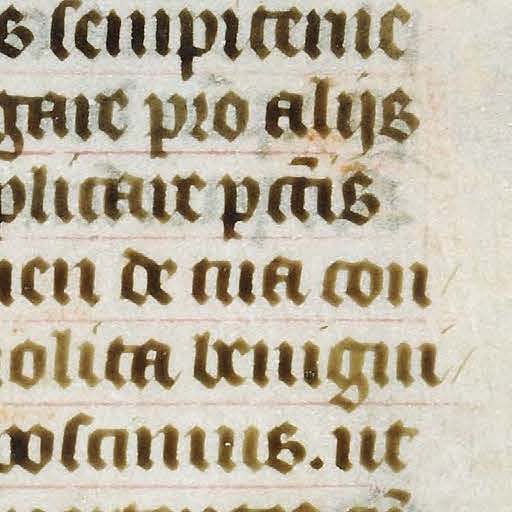 s sempiterne
gare pro alijs
plicare pctis
men de tua con
solita benigni
poscimus. ut